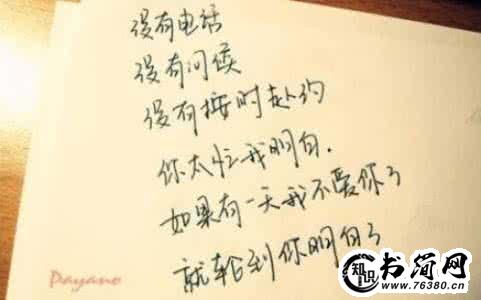 没有电话
没有问候
没有按时赴约
你太忙我明白.
如果有一天我不爱你了
就轮到你明白了
Dayano
知识 书简网
www.76380.cn